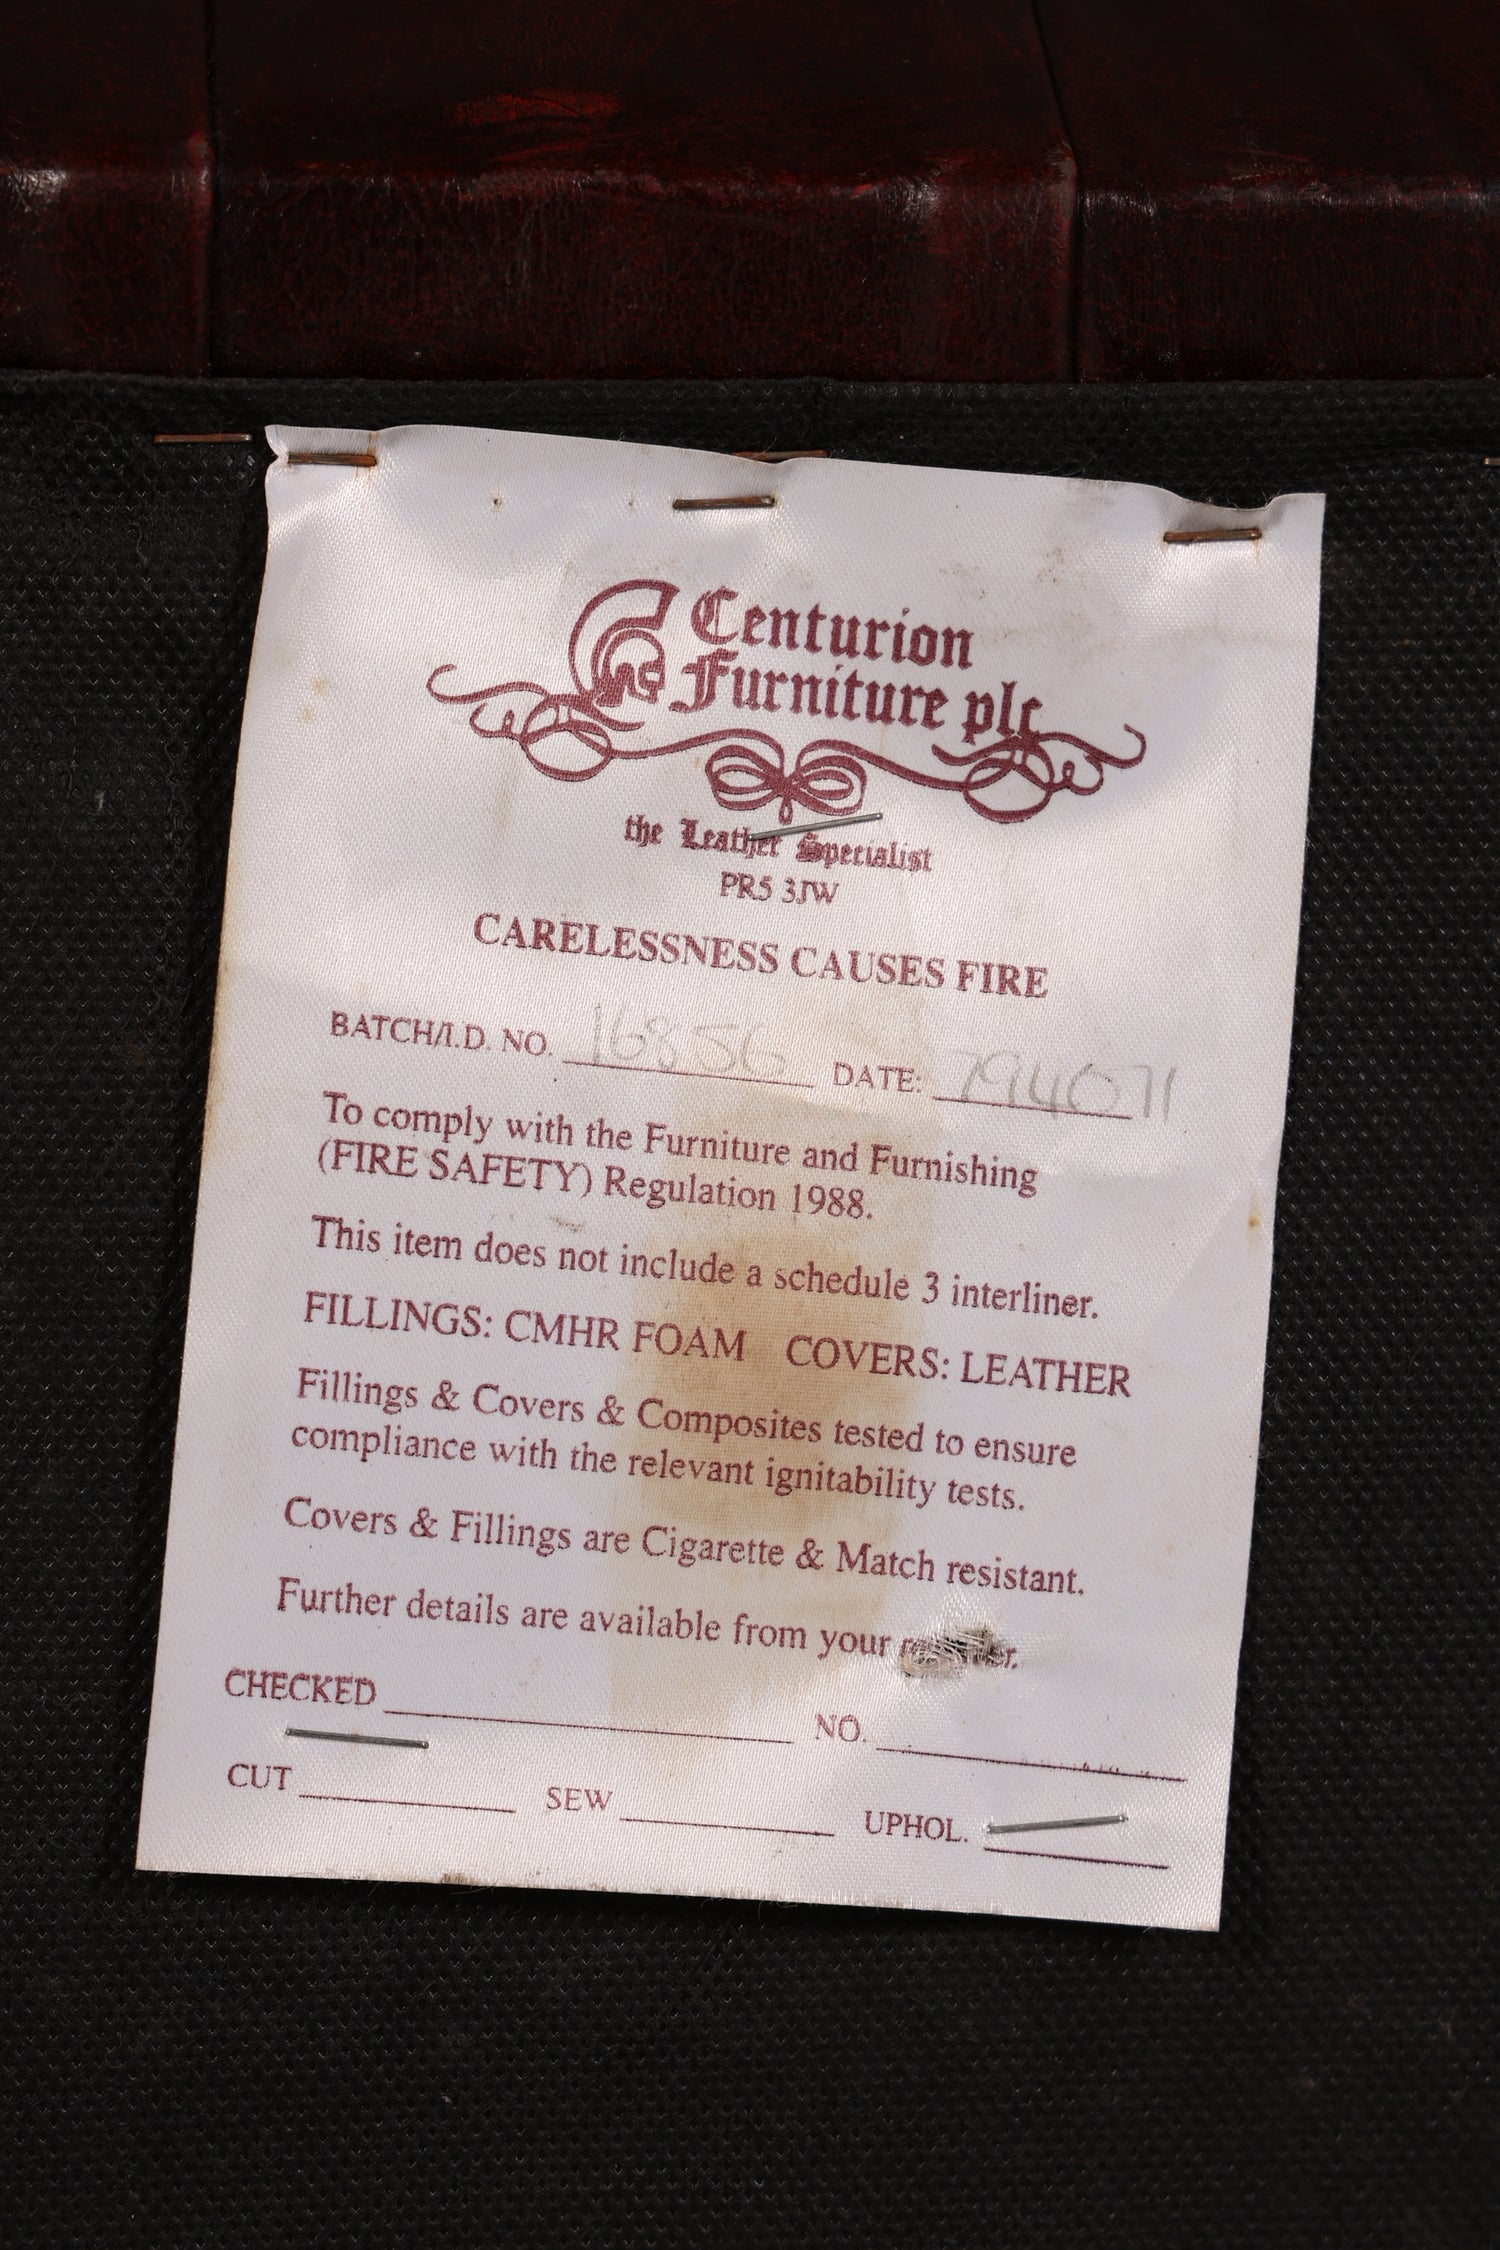 Centurion
Furniture plc
the Leather Specialist
PR5 3JW
CARELESSNESS CAUSES FIRE
BATCH/I.D. NO. 16856 DATE: 794071
To comply with the Furniture and Furnishing
(FIRE SAFETY) Regulation 1988.
This item does not include a schedule 3 interliner.
FILLINGS: CMHR FOAM COVERS: LEATHER
Fillings & Covers & Composites tested to ensure
compliance with the relevant ignitability tests.
Covers & Fillings are Cigarette & Match resistant.
Further details are available from your
CHECKED NO.
CUT SEW UPHOL.